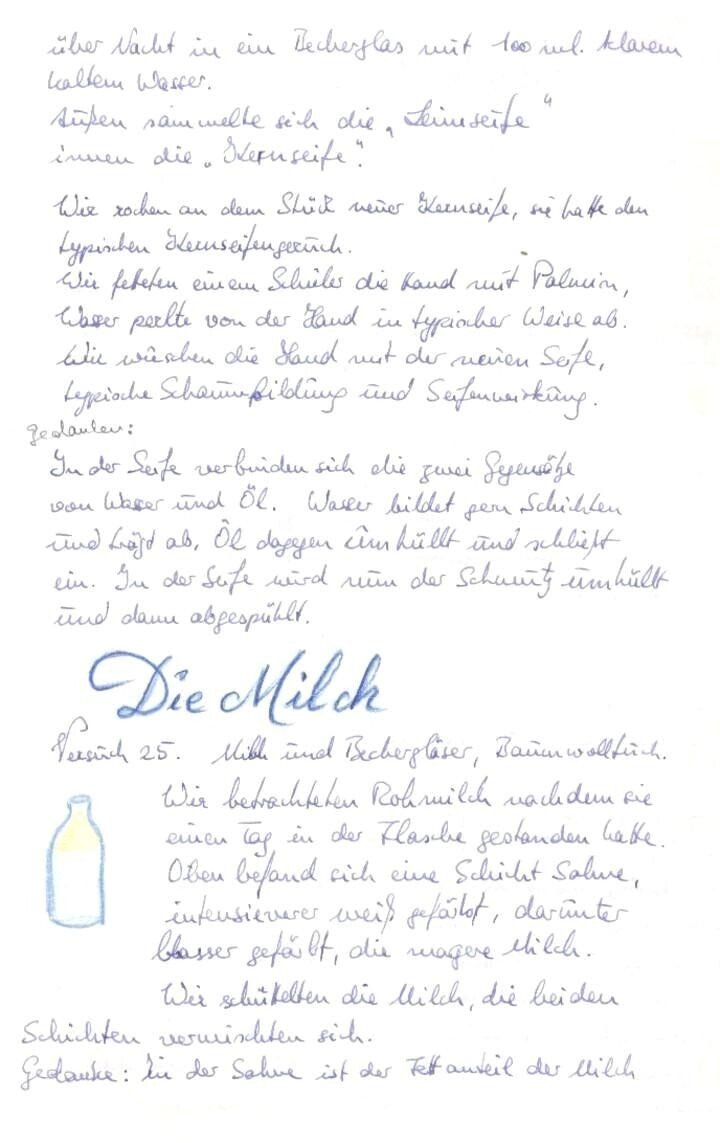 über Nacht in ein Becherglas mit 100 ml. klarem
kaltem Wasser.
Außen sammelte sich die „Leimseife“
innen die „Kernseife“.
Wir rochen an dem Stück neuer Kernseife, sie hatte den
typischen Kernseifengeruch.
Wir fetteten einem Schüler die Hand mit Palmin,
Wasser perlte von der Hand in typischer Weise ab.
Wir wuschen die Hand mit der neuen Seife,
typische Schaumbildung und Seifenwirkung.
Gedanken:
In der Seife verbinden sich die zwei Gegensätze
von Wasser und Öl. Wasser bildet gern Schichten
und trägt ab, Öl dagegen umhüllt und schließt
ein. In der Seife wird nun der Schmutz umhüllt
und dann abgespühlt.
Die Milch
Versuch 25. Milch und Bechergläser, Baumwolltuch.
Wir betrachteten Rohmilch nachdem sie
einen Tag in der Flasche gestanden hatte.
Oben befand sich eine Schicht Sahne,
intensieverer weiß gefärbt, darunter
blasser gefärbt, die magere Milch.
Wir schüttelten die Milch, die beiden
Schichten vermischten sich.
Gedanke: In der Sahne ist der Fettanteil der Milch